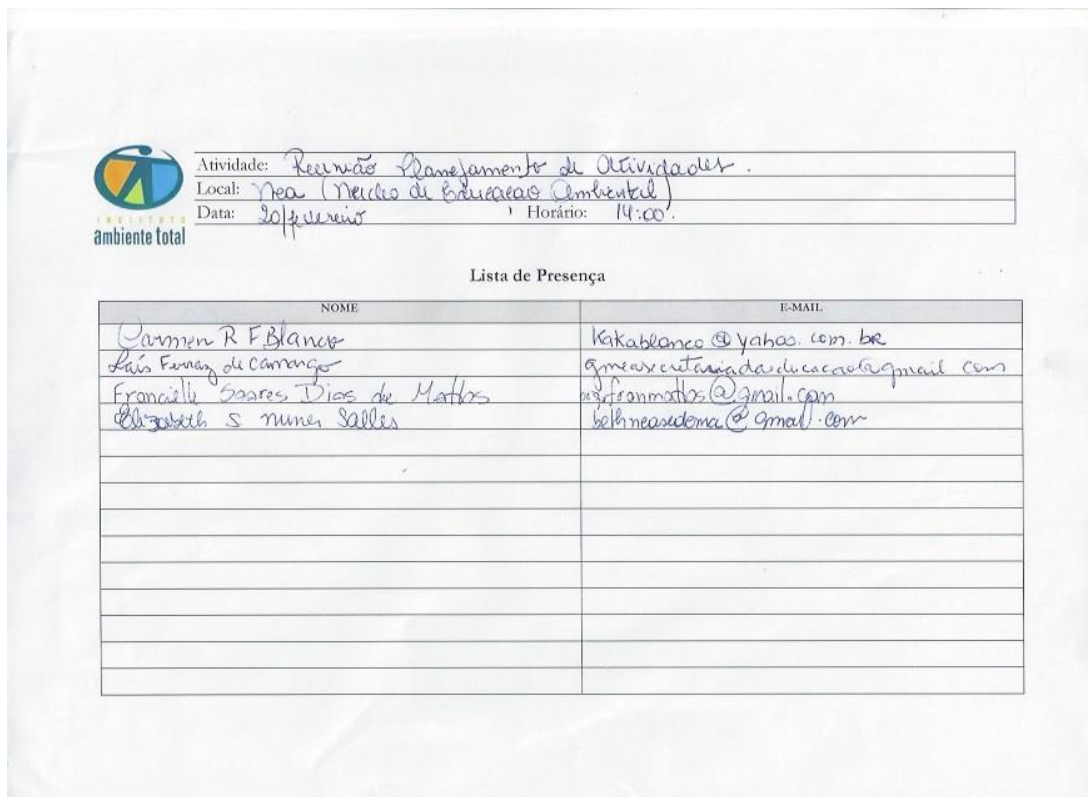 Atividade: Reunião Planejamento de Atividades.
Local: Nea (Núcleo de Educacao Ambiental)
Data: 20/fevereiro Horário: 14:00'.
INSTITUTO
ambiente total
Lista de Presença
NOME E-MAIL
Carmen R F Blanco Kakablanco@yahoo.com.br
Laís Ferraz de Camargo gmeasecretariadaeducacao@gmail com
Francielle Soares Dias de Mattos franmattos@gmail.com
Elizabeth S. nunes Salles bethneasedema@gmail.com